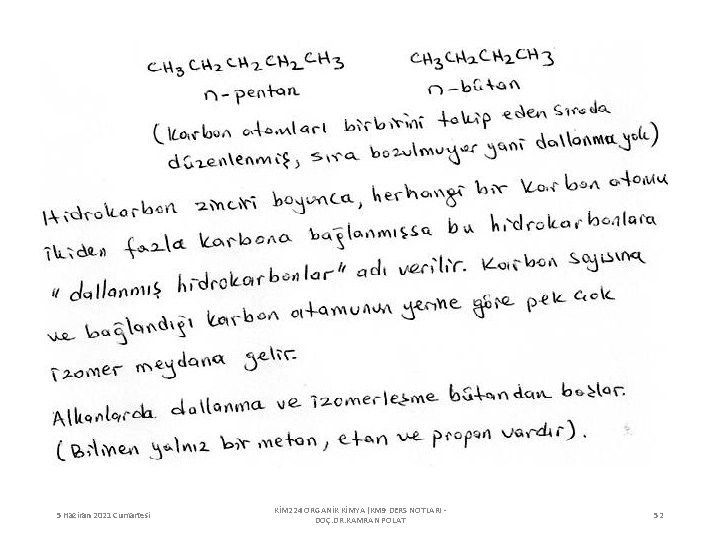 CH3CH2CH2CH2CH3 CH3CH2CH2CH3
n-pentan n-bütan
(Karbon atomları birbirini takip eden sırada
düzenlenmiş, sıra bozulmuyor yani dallanma yok)
Hidrokarbon zinciri boyunca, herhangi bir karbon atomu
ikiden fazla karbona bağlanmışsa bu hidrokarbonlara
"dallanmış hidrokarbonlar" adı verilir. Karbon sayısına
ve bağlandığı karbon atomunun yerine göre pek çok
izomer meydana gelir.
Alkanlarda dallanma ve izomerleşme bütandan başlar.
(Bilinen yalnız bir metan, etan ve propan vardır).
5 Haziran 2021 Cumartesi
KİM224 ORGANİK KİMYA (KM9 DERS NOTLARI -
DOÇ.DR.KAMRAN POLAT
52